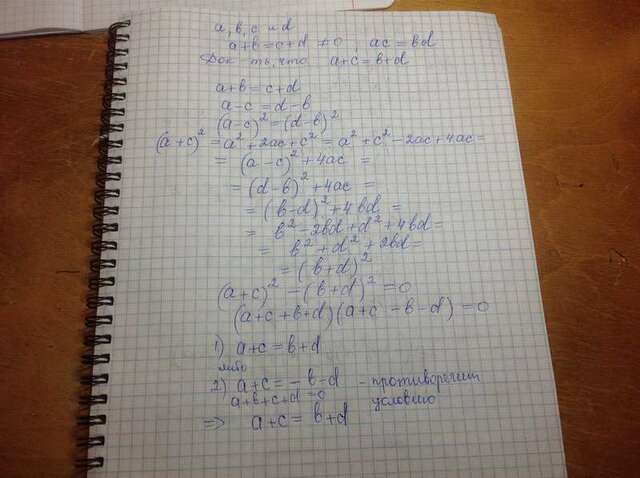 a, b, c и d
a+b=c+d ≠0, ac=bd
Док-ть, что a+c=b+d
a+b=c+d
a-c=d-b
(a-c)²=(d-b)²
(a+c)²=a²+2ac+c²=a²+c²-2ac+4ac=
=(a-c)²+4ac=
=(d-b)²+4ac=
=(b-d)²+4bd=
=b²-2bd+d²+4bd=
=b²+d²+2bd=
=(b+d)²
(a+c)²-(b+d)²=0
(a+c+b+d)(a+c-b-d)=0
1) a+c=b+d
либо
2) a+c=-b-d - противоречит
a+b+c+d=0 условию
=> a+c=b+d